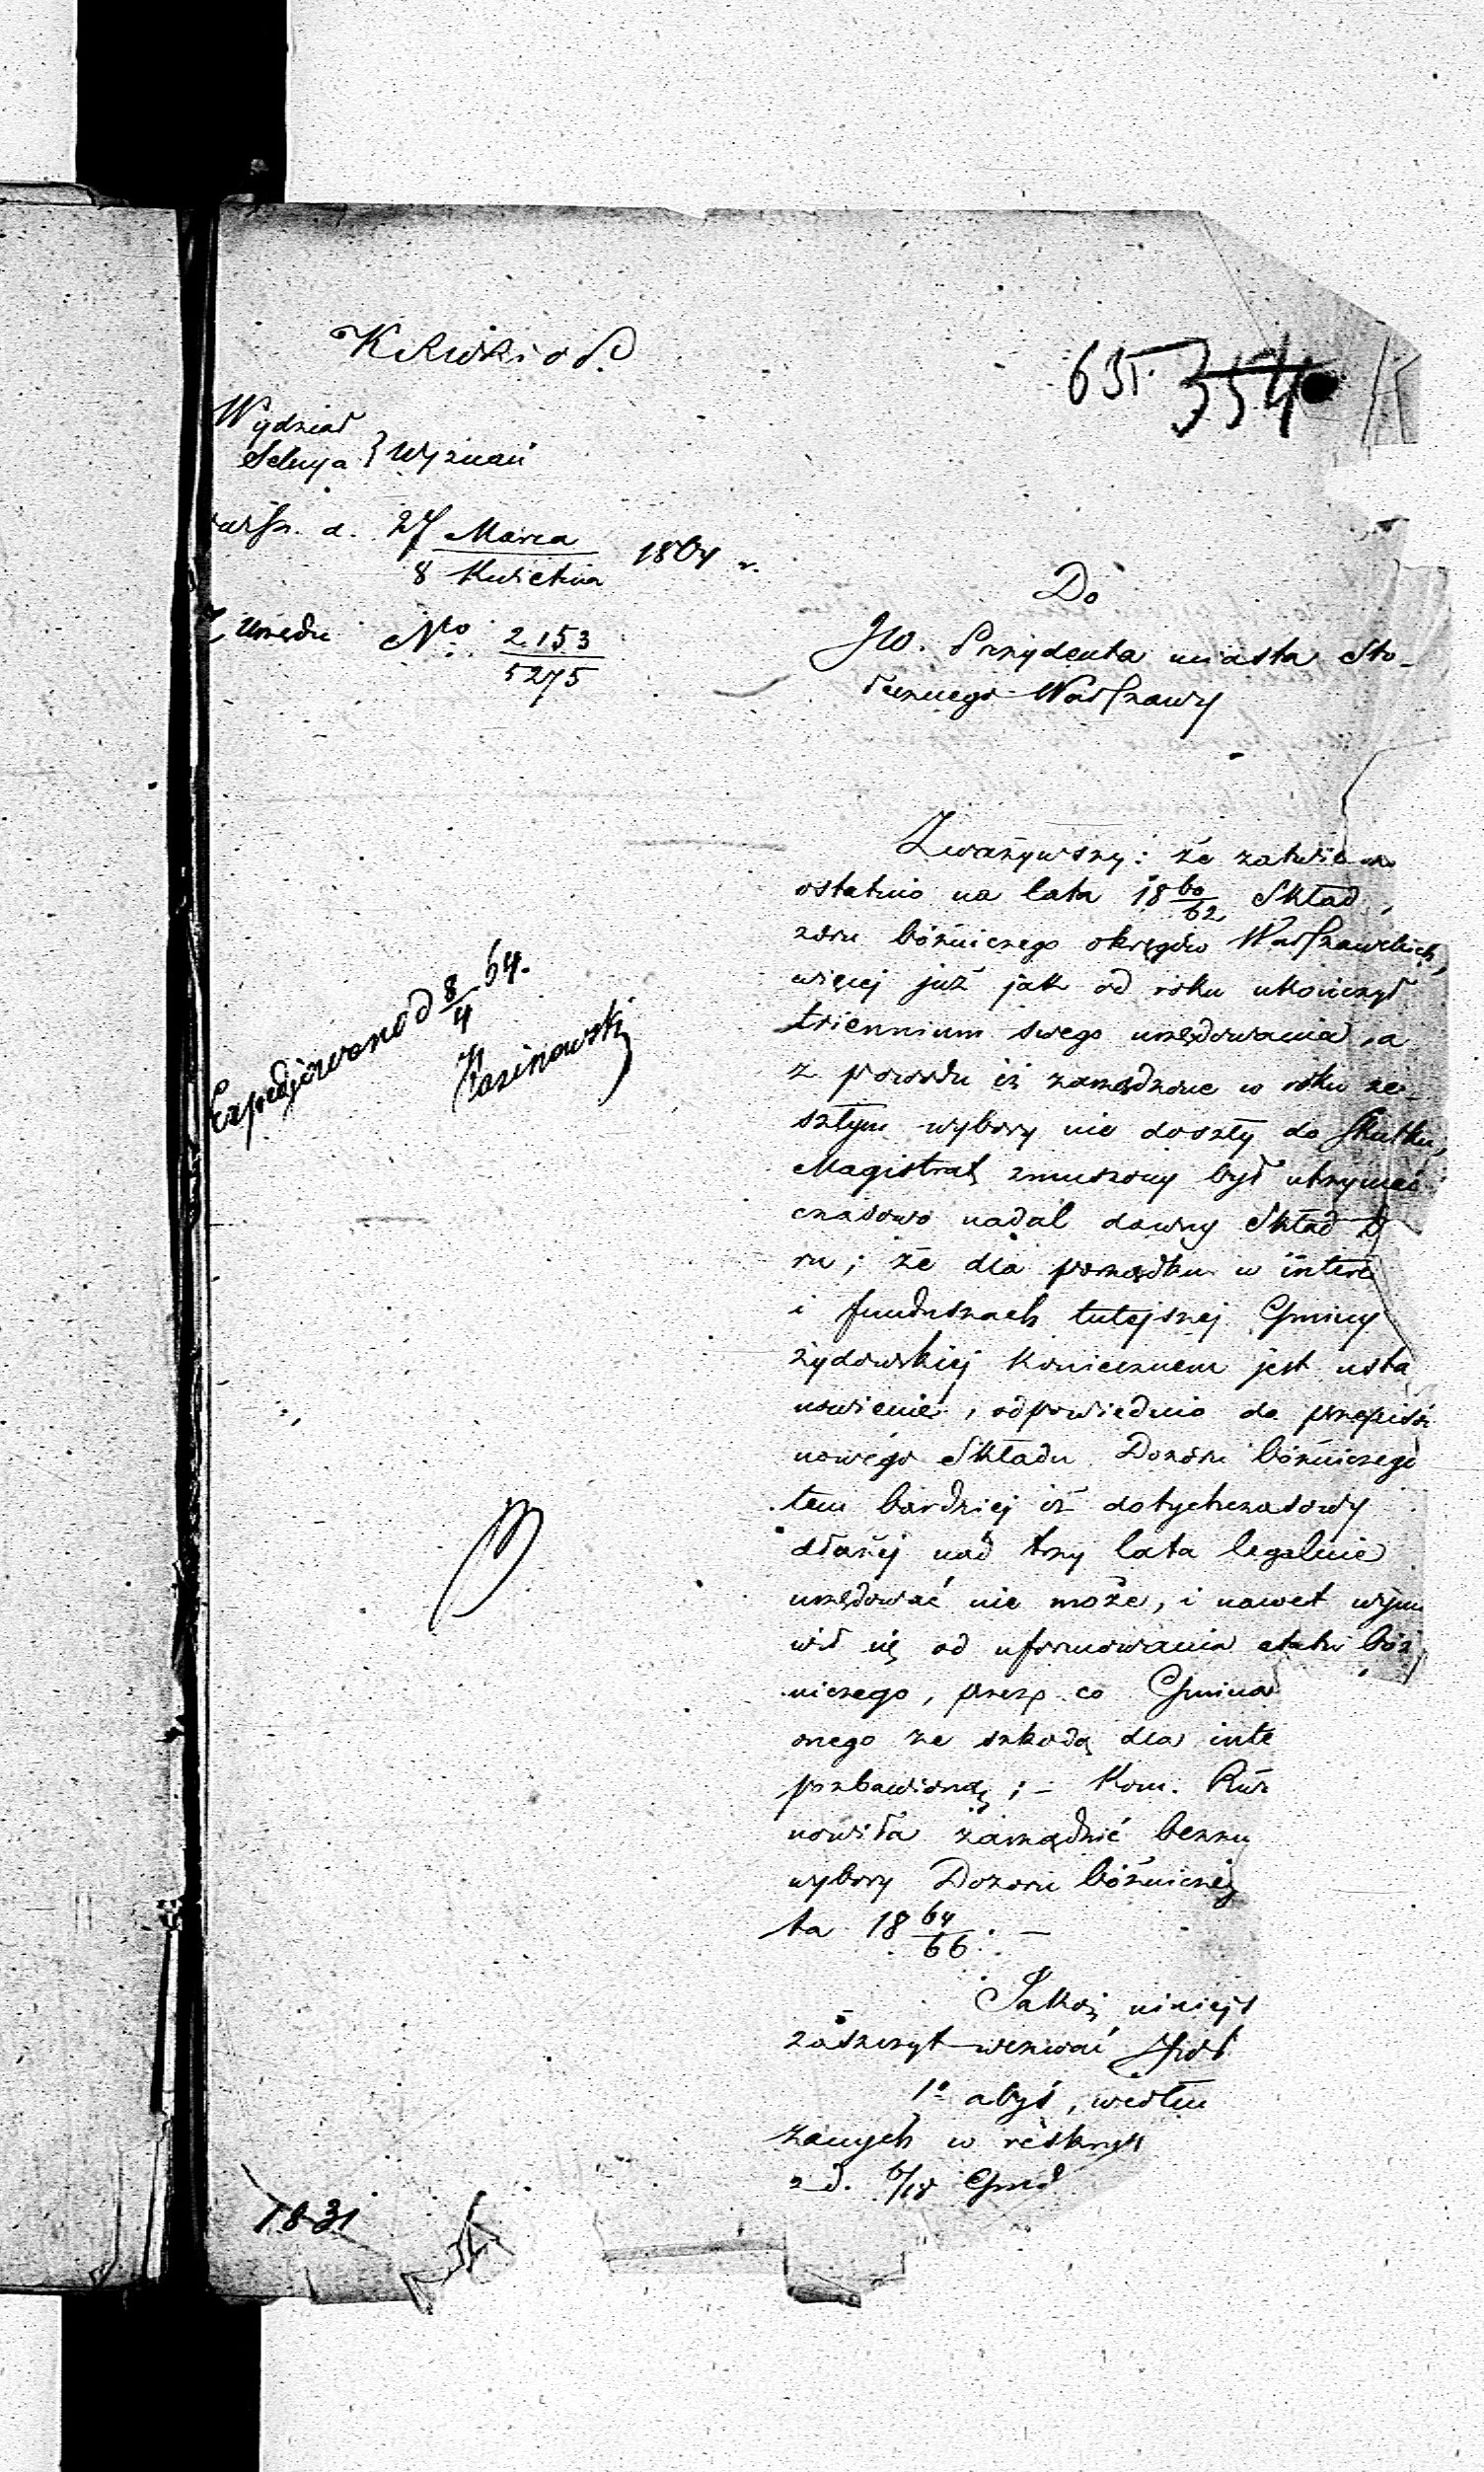 K R W R i O P.
635. 354
Wydział
Sekcya } Wyznań
warsz. d. 27 Marca / 8 Kwietnia 1864 r.
Z Urzędu No. 2153 / 5275
Do
JW. Prezydenta miasta Sto-
łecznego Warszawy
Zważywszy: że zatwie
ostatnio na lata 18 60/62 Skład
zoru bóżniczego okręgów Warszawskich,
więcej już jak od roku ukończył
triennium swego urzędowania, a
z powodu iż zarządzone w roku ze-
szłym wybory nie doszły do skutku,
Magistrat zmuszony był utrzymać
czasowo nadal dawny Skład D
ru; że dla porządku w intere
i funduszach tutejszej Gminy
żydowskiej koniecznem jest usta
nowienie, odpowiednio do przepisów
nowego Składu Dozoru bóżniczego
tem bardziej iż dotychczasowy
dłużej nad trzy lata legalnie
urzędować nie może, i nawet wym
wił się od uformowania etatu bóż
niczego, przez co Gmina
onego ze szkodą dla inte
pozbawioną; – Kom. Rz
nowiła zarządzić bezzw
wybory Dozoru bóżnicze
ta 18 64/66. –
Jakoż niniejs
zaszczyt wezwać JW
1o abyś, wedłu
zanych w reskryp
z d. 6/18 Grud
Expedjowano d 8/4 64.
1831